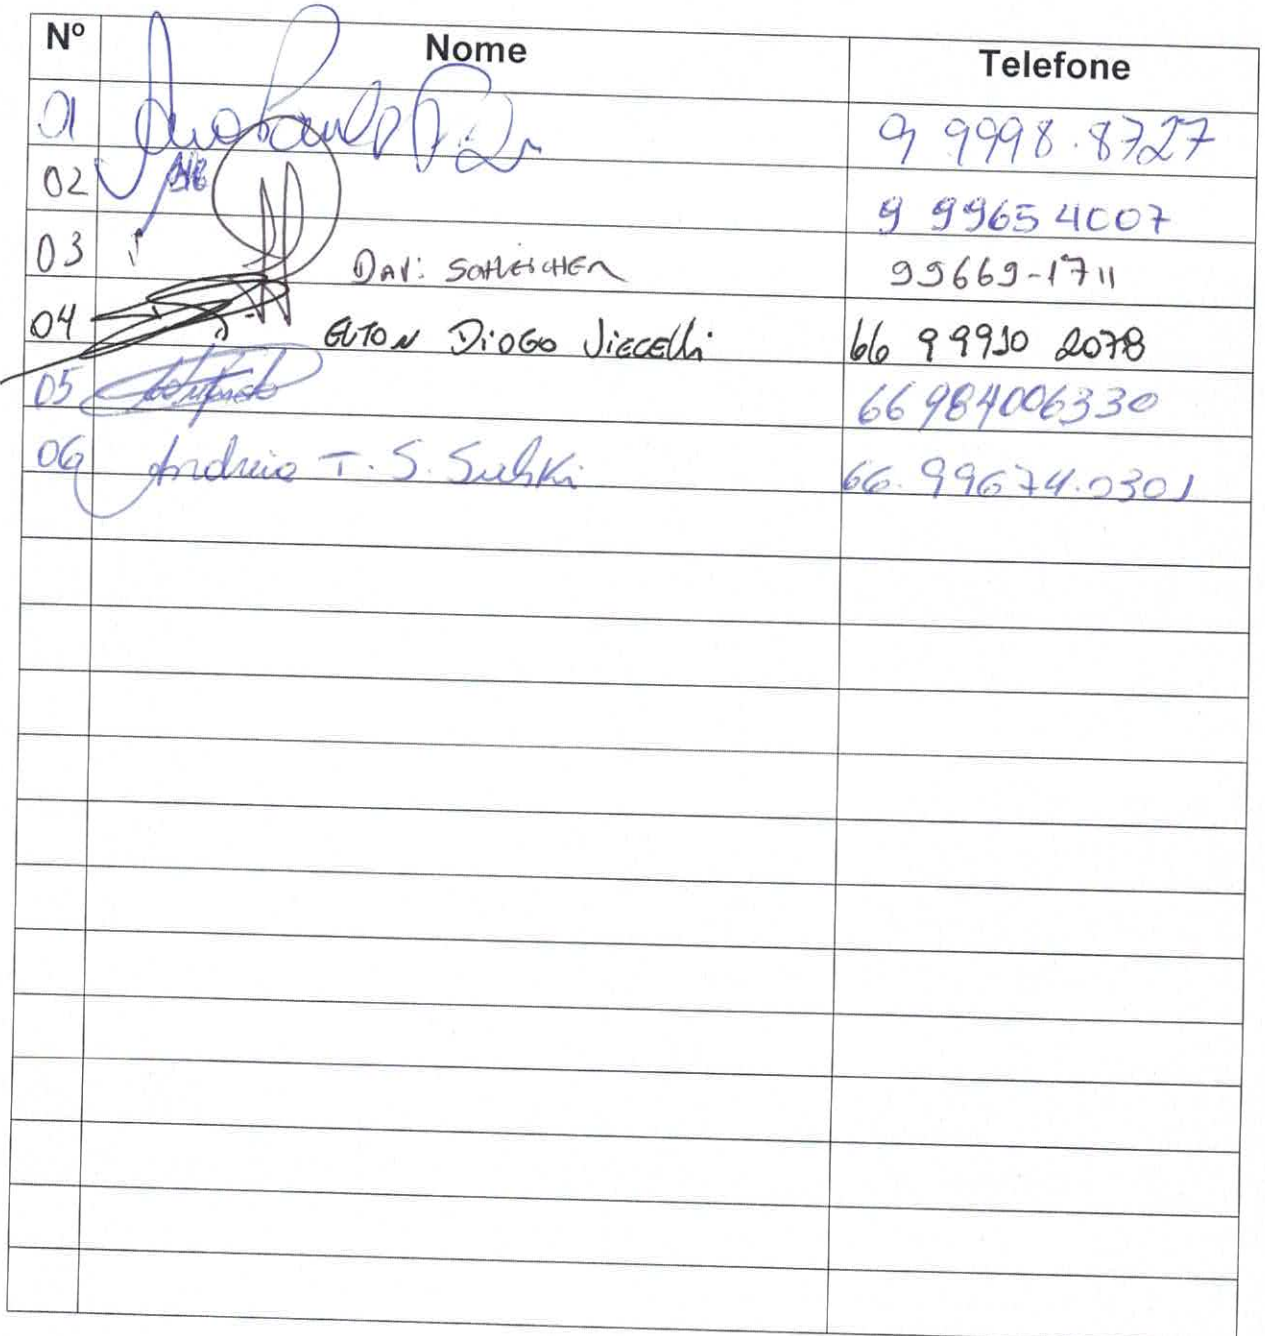 Nº Nome Telefone
01 9 9998.8727
02 9 99654007
03 DAVi SCHLEICHER 99669-1711
04 ELTON DiOGO ViECELLi 66 9 9910 2078
05 66 984006330
06 Andreia T. S. 66.99674.0301